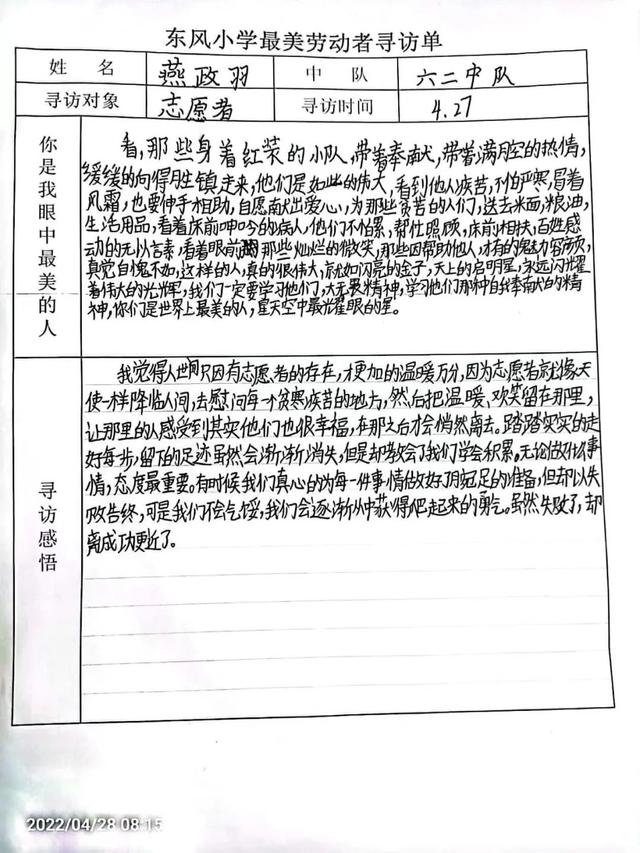 东风小学最美劳动者寻访单
姓 名 燕政羽 中 队 六二中队
寻访对象 志愿者 寻访时间 4.27
你是我眼中最美的人
看,那些身着红装的小队,带着奉献,带着满腔的热情,
缓缓的向得胜镇走来,他们是如此的伟大,看到他人疾苦,不怕严寒,冒着
风霜,也要伸手相助,自愿献出爱心,为那些贫苦的人们,送去米面,粮油,
生活用品,看着床前呻吟的病人,他们不怕累,帮忙照顾,床前相扶,百姓感
动的无以言素,看着眼前那些灿烂的微笑,那些因帮助他人,才有的魅力容颜,
真觉自愧不如,这样的人,真的很伟大,就如闪亮的金子,天上的启明星,永远闪耀
着伟大的光辉,我们一定要学习他们,大无畏精神,学习他们那种自我奉献的精
神,你们是世界上最美的人,星天空中最光耀眼的星。
寻访感悟
我觉得人世间只因有志愿者的存在,才更加的温暖万分,因为志愿者就像天
使一样降临人间,去慰问每一个贫寒疾苦的地方,然后把温暖、欢笑留在那里,
让那里的人感受到其实他们也很幸福,在那之后才会悄然离去。踏踏实实的走
好每步,留下的足迹虽然会渐渐消失,但是却教会了我们学会积累。无论做什么事
情,态度最重要。有时候我们真心的为每一件事情做好了充足的准备,但却以失
败告终,可是我们不会气馁,我们会逐渐从中获得爬起来的勇气。虽然失败了,却
离成功更近了。
2022/04/28 08:15